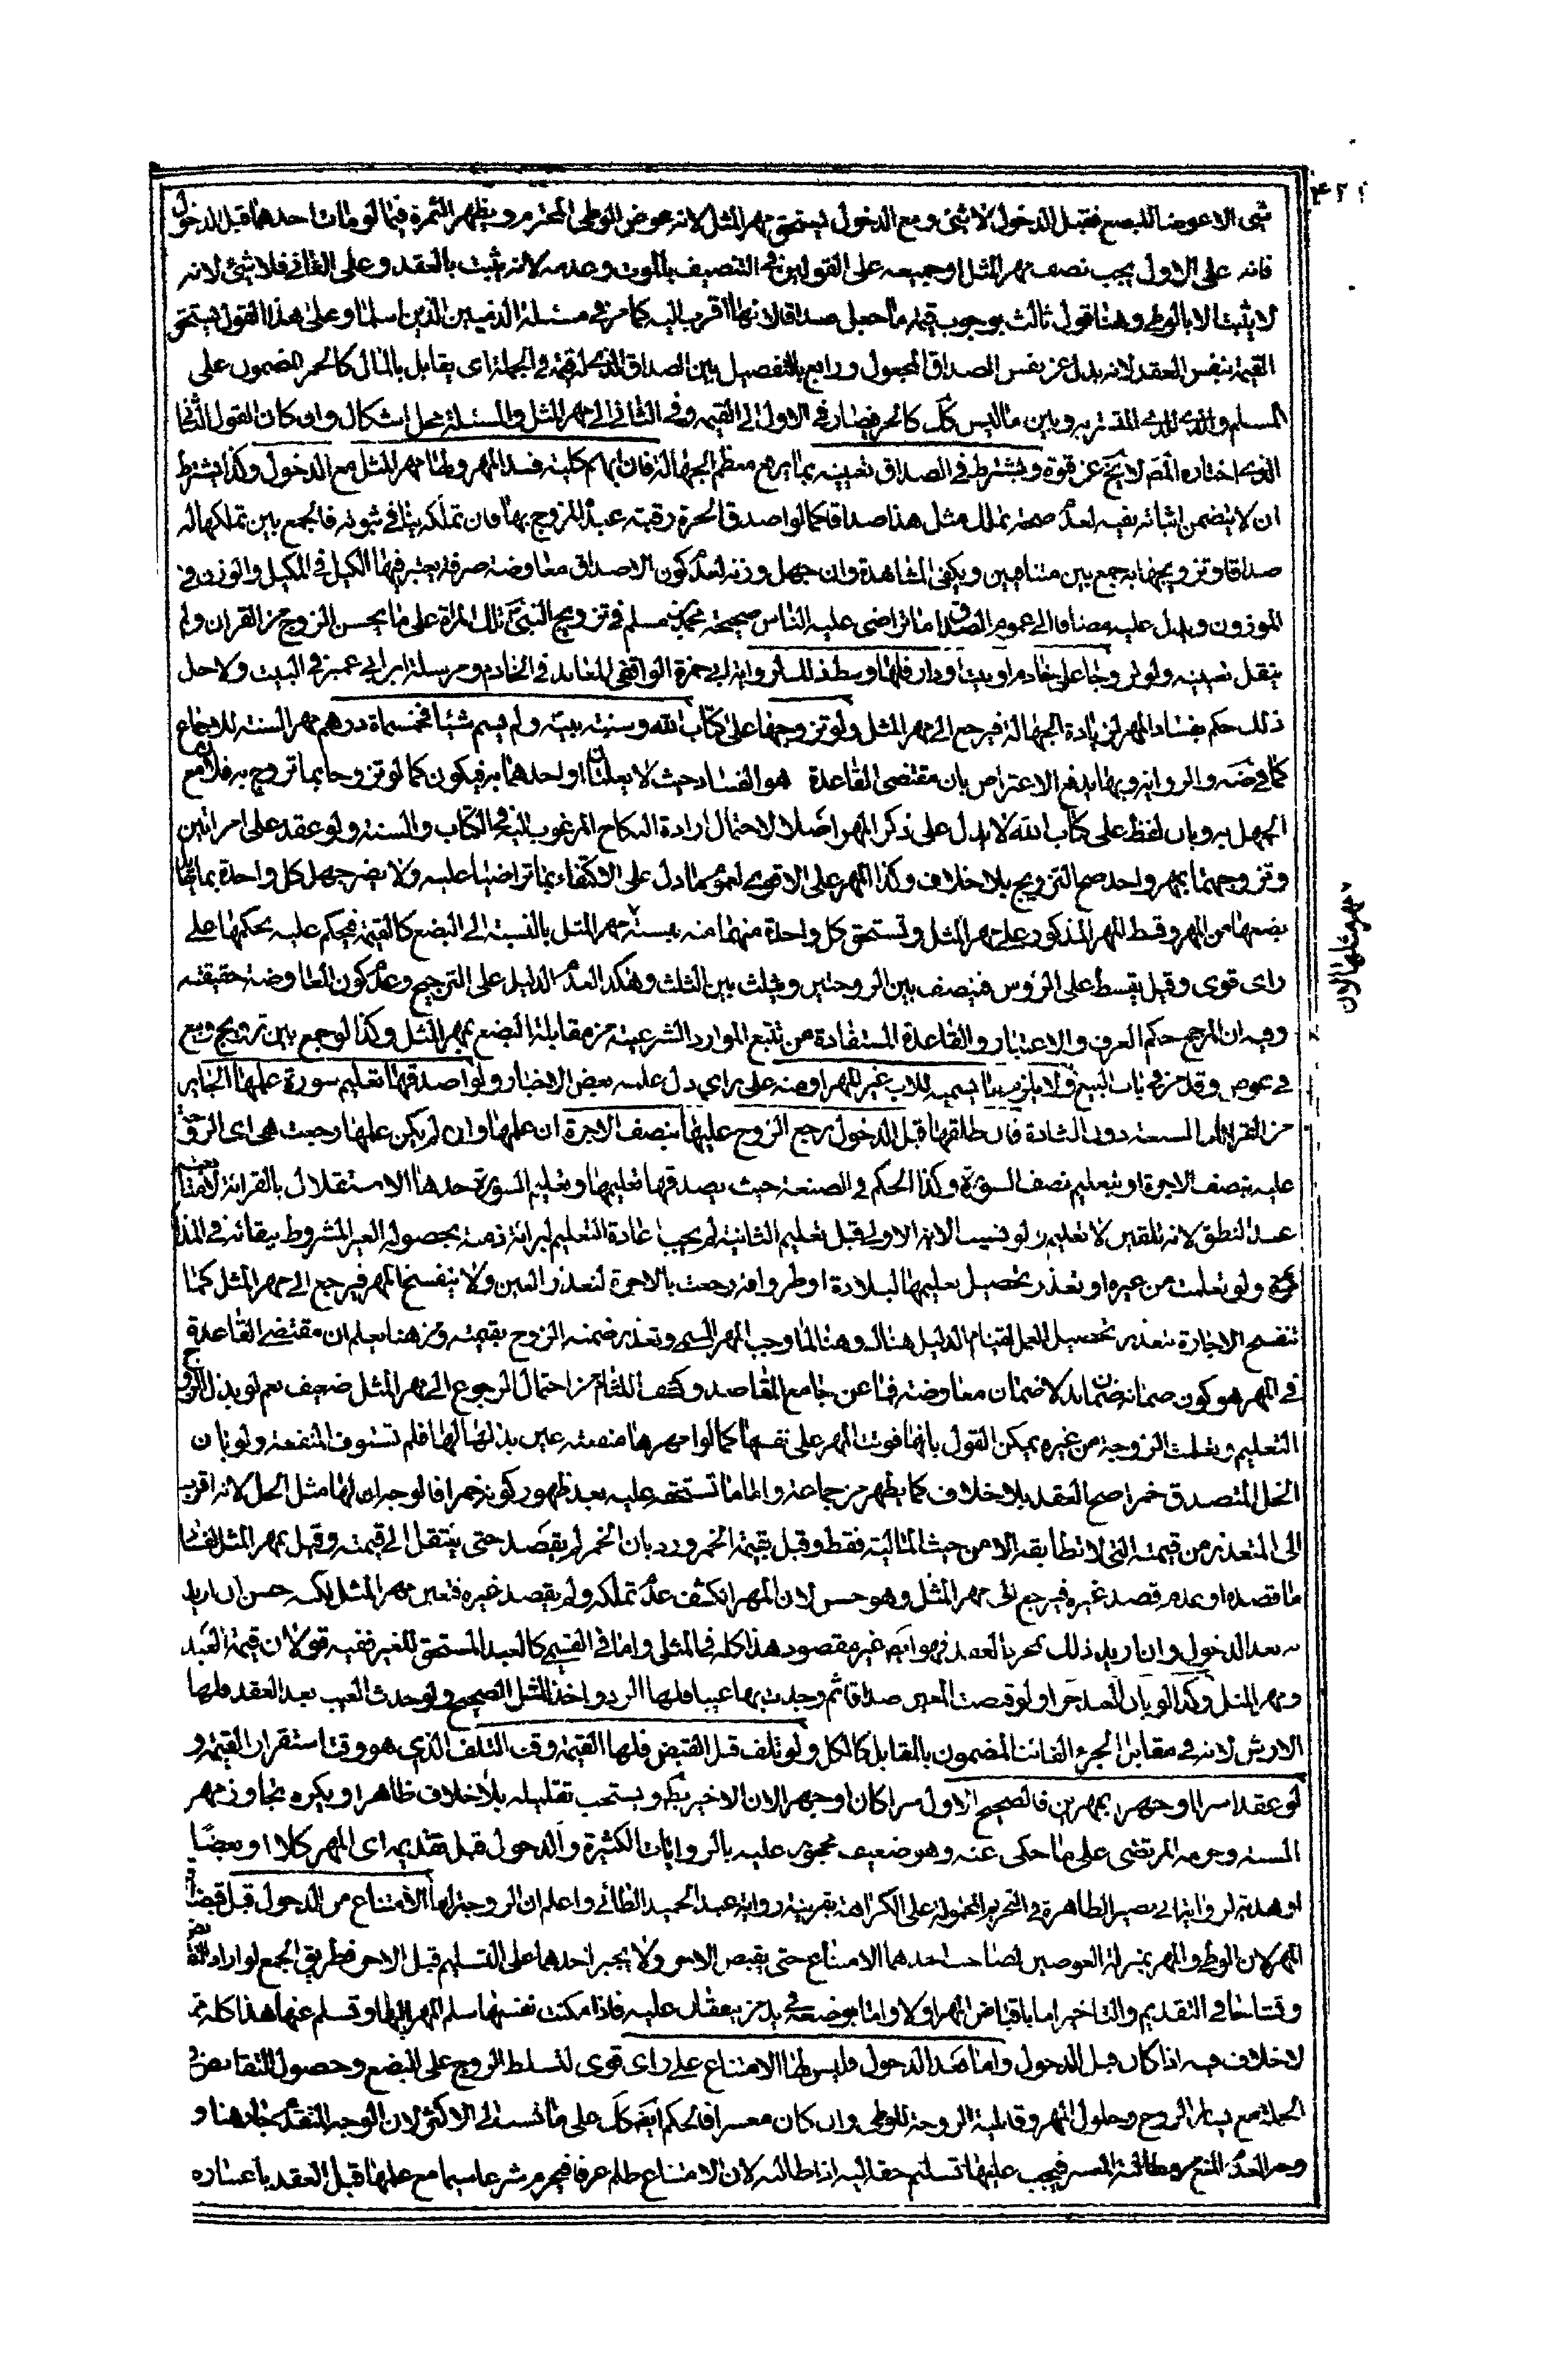 شئ الا عوضا للبضع فقبل الدخول لا شئ و مع الدخول يستحق مهر المثل لانه عوض الوطى المحترم و يظهر الثمرة فيما لو مات احدهما قبل الدخول
فانه على الاول يجب نصف مهر المثل او جميعه على القولين فى التنصيف بالموت و عدمه لانه يثبت بالعقد و على الثانى فلا شئ لانه
لا يثبت الا بالوطى و هنا قول ثالث بوجوب قيمة ما جعل صداقا لانها اقرب اليه كما مر فى مسئلة الذميين الذين اسلما و على هذا القول يستحق
القيمة بنفس العقد لانه بدل عن نفس الصداق المجعول و رابع بالتفصيل بين الصداق الذى له قيمة فى الجملة اى يقابل بالمال كالخمر المضمون على
المسلم و الذى للذمى المقتر به و بين ما ليس كك كالحر فيصار فى الاول الى القيمة و فى الثانى الى مهر المثل و المسئلة محل اشكال و ان كان القول الثانى
الذى اختاره المص لا يخ عن قوة و يشترط فى الصداق تعيينه بما يرفع معظم الجهالة فان ابهم كلية فسد المهر و لها مهر المثل مع الدخول و كذا يشترط
ان لا يتضمن اثباته نفيه لعدم صحة تملك مثل هذا صداقا كما لو اصدق الحرة رقبة عبده المزوج بها فان تملكه ينافى ثبوته فالجمع بين تملكها له
صداقا و تزويجها به جمع بين متنافيين و يكفى المشاهدة و ان جهل وزنه لعدم كون الاصداق معاوضة صرفة يعتبر فيها الكيل فى المكيل و الوزن فى
الموزون و يدل عليه مضافا الى عموم الصداق ما تراضى عليه الناس صحيحة محمد بن مسلم فى تزويج النبى ص تلك المراة على ما يحسن الزوج من القران و لم
ينقل تعيينه و لو تزوجها على خادم او بيت او دار فلها وسط ذلك لرواية ابى حمزة الواقفى المعاند فى الخادم و مرسلة ابن ابى عمير فى البيت و لا حل
ذلك حكم بفساد المهر لزيادة الجهالة فيرجع الى مهر المثل و لو تزوجها على كتاب الله و سنة نبيه و لم يسم شيئا فخمسمأة درهم مهر السنة للاجماع
كما فى ضه و الرواية و بها يدفع الاعتراض بان مقتضى القاعدة هو الفساد حيث لا يعلمان او احدهما به فيكون كما لو تزوجها بما تزوج به فلان مع
الجهل به و بان لفظ على كتاب الله لا يدل على ذكر المهر اصلا لاحتمال ارادة النكاح المرغوب اليه فى الكتاب و السنة و لو عقد على امراتين
و تزوجهما بمهر واحد صح التزويج بلا خلاف و كذا المهر على الاقوى لعموم ما دل على الاكتفاء بما تراضيا عليه و لا يضر جهل كل واحدة بما يقابل
بضعها من المهر و قسط المهر المذكور على مهر المثل و تستحق كل واحدة منهما منه بنسبة مهر المثل بالنسبة الى البضع كالقيمة فيحكم عليه بحكمها على
راى قوى و قيل يقسط على الرؤس فينصف بين الزوجتين و يثلث بين الثلث و هكذا لعدم الدليل على الترجيح و عدم كون المعاوضة حقيقته
و فيه ان المرجح حكم العرف و الاعتبار و القاعدة المستفادة من تتبع الموارد الشرعية من مقابلة البضع بمهر المثل و كذا لو جمع بين تزويج و بيع
فى عوض و قد مر فى باب البيع و لا يلزم ما يسميه للاب غير المهر او منه على راى دل عليه بعض الاخبار و لو اصدقها تعليم سورة علمها الجايز
من القراءات السبعة دون الشاذة فان طلقها قبل الدخول رجع الزوج عليها بنصف الاجرة ان علمها و ان لم يكن علمها رجعت هى اى الزوجة
عليه بنصف الاجرة او بتعليم نصف السورة و كذا الحكم فى الصنعة حيث يصدقها تعليمها و تعليم السورة حدها الاستقلال بالقراءة لا متابعته
عند النطق لانه تلقين لا تعليم و لو نسيت الاية الاولى قبل تعليم الثانية لم يجب اعادة التعليم لبرائة ذمته بحصوله الغير المشروط ببقائه فى الذا
كرة و لو تعلمت من غيره او تعذر تحصيل تعليمها لبلادة او طروافة رجعت بالاجرة لتعذر العين و لا ينفسخ المهر فيرجع الى مهر المثل كما
تنفسخ الاجارة بتعذر تحصيل العمل لقيام الدليل هناك و هنا لما وجب المهر المسمى و تعذر ضمنه الزوج بقيمته و من هنا يعلم ان مقتضى القاعدة
فى المهر هو كون ضمانه ضمان يد لا ضمان معاوضة فما عن جامع المقاصد و كشف اللثام من احتمال الرجوع الى مهر المثل ضعيف نعم لو بذل الزوج
التعليم و تعلمت الزوجة من غيره يمكن القول بانها فوتت المهر على نفسها كما لو امهرها منفعة عين بذلها لها فلم تستوف المنفعة و لو بان
الخل المتصدق خمرا صح العقد بلا خلاف كما يظهر من جماعة و اما ما تستحقه عليه بعد ظهور كونه خمرا فالوجه ان لها مثل الخل لانه اقرب
الى المتعذر من قيمته التى لا تطابقه الا من حيث المالية فقط و قيل بقيمة الخمر و رد بان الخمر لم يقصد حتى ينتقل الى قيمته و قيل بمهر المثل لفساد
ما قصده او عدم قصد غيره فيرجع الى مهر المثل و هو حسن لان المهر انكشف عدم تملكه و لم يقصد غيره فتعين مهر المثل لكنه حسن ان اريد
به بعد الدخول و ان اريد ذلك بمجرد العقد فهو ايضا غير مقصود هذا كله فى المثلى و اما فى القيمى كالعبد المستحق للغير ففيه قولان قيمة العبد
و مهر المثل و كذا لو بان العبد حرا و لو قبضت المهر صداقا ثم وجدت بها عيبا فلها الرد و اخذ المثل الصحيح و لو حدث العيب بعد العقد فلها
الارش لانه فى مقابل الجزء الفائت المضمون بالمقابل كالكل و لو تلف قبل القبض فلها القيمة وقت التلف الذى هو وقت استقرار القيمة و
لو عقدا سرا و جهرا بمهرين فالصحيح الاول سرا كان او جهرا لان الاخير و يستحب تقليله بلا خلاف ظاهرا و يكره تجاوز مهر
السنة و حرمه المرتضى على ما حكى عنه و هو ضعيف محجوج عليه بالروايات الكثيرة و الدخول قبل تقديمه اى المهر كلا او بعضا
او هدية لرواية ابى بصير الظاهرة فى التحريم المحمولة على الكراهة بقرينة رواية عبد الحميد الطائى و اعلم ان الزوجة لها الامتناع من الدخول قبل قبض
المهر لان الوطى و المهر بمنزلة العوضين لصاحب احدهما الامتناع حتى يقبض الاخر و لا يجبر احدهما على التسليم قبل الاخر فطريق الجمع لو ارادا
و تشاحا فى التقديم و التاخير اما باقباض المهر اولا و اما بوضعه فى يد من يتفقان عليه فاذا مكنت نفسها سلم المهر اليها و تسلم عنها هذا كله مما
لا خلاف فيه اذا كان قبل الدخول و اما بعد الدخول فليس لها الامتناع على راى قوى لتسلط الزوج على البضع و حصول التقابض فى
الجملة مع يسار الزوج و حلول المهر و قابلية الزوجة للوطى و ان كان معسرا فالحكم ايضا كك على ما نسب الى الاكثر لان الوجه المتقدم جار هنا و
وجه العدم المنع من مطالبة المعسر فيجب عليها تسليم حقه اليه اذا طالبه لان الامتناع ظلم عرفا فيحرم شرعا سيما مع علمها قبل العقد باعساره
مهر مثلها الان